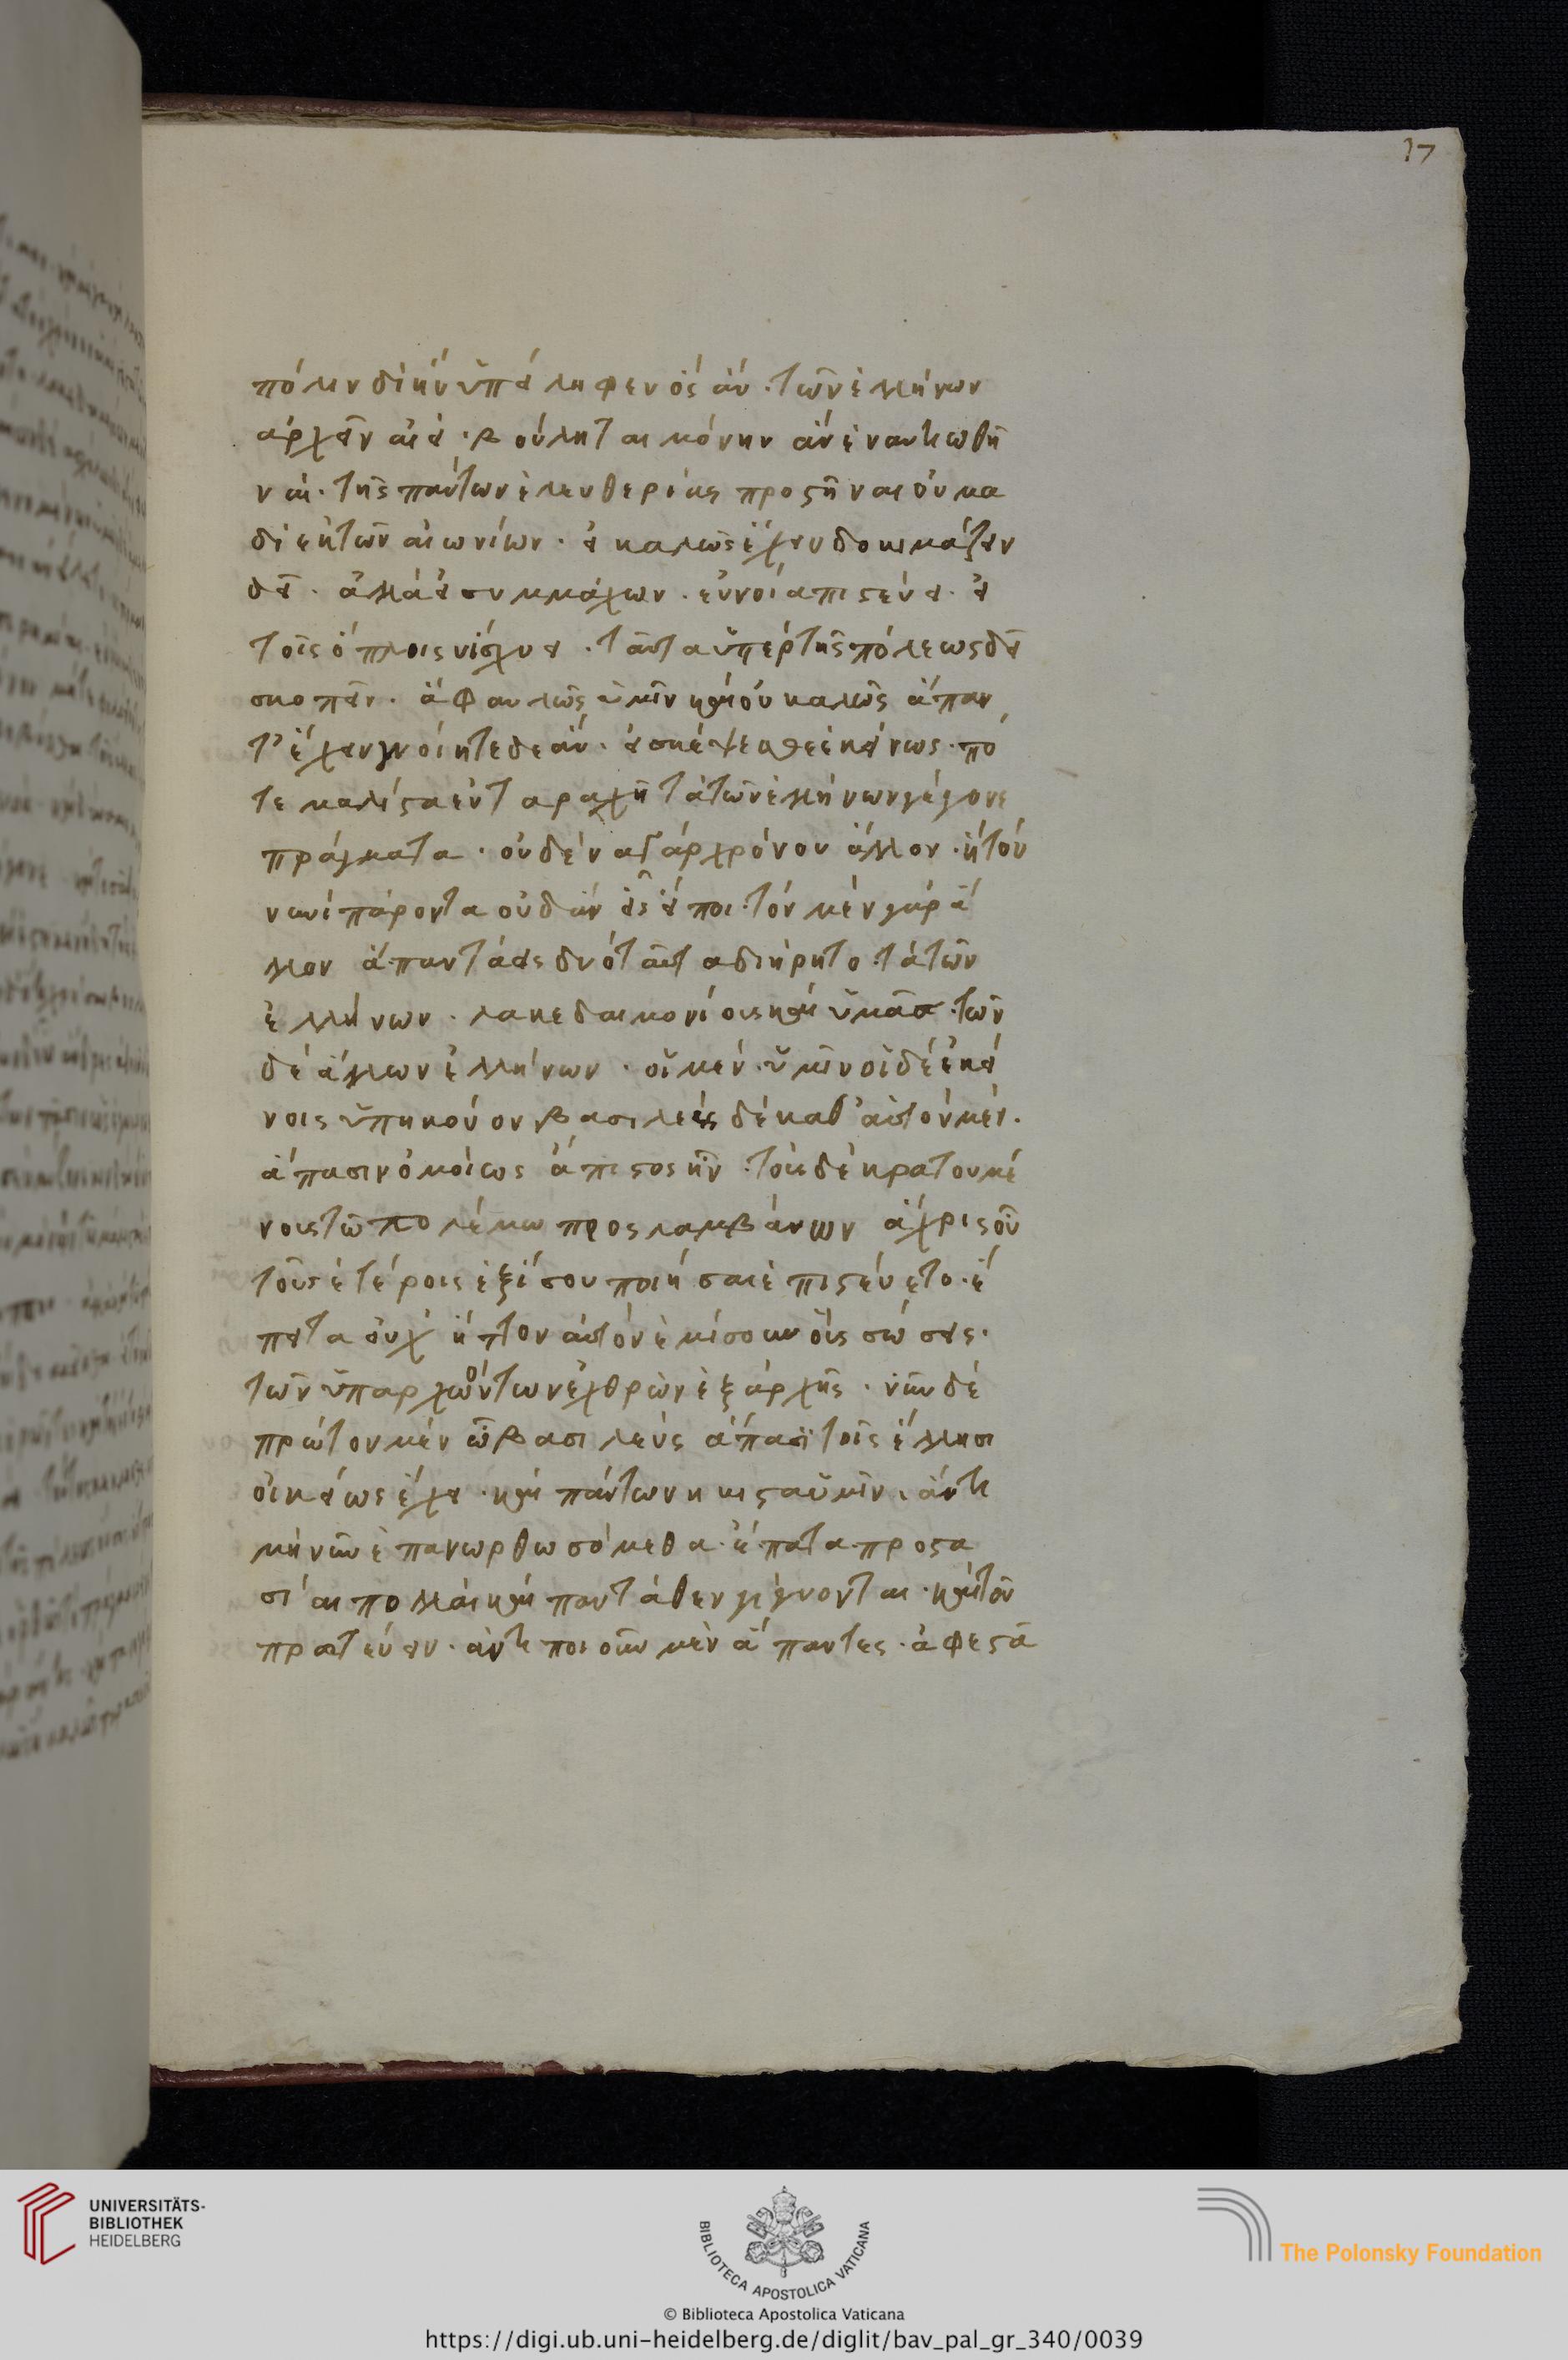 πόλιν δι ἣν ὑπείληφεν ὃς ἂν · τῶν ἑλλήνων
ἄρχειν αἰεὶ · βούληται μόνην ἂν ἐναντιωθῆ
ναι · τῆς πάντων ἐλευθερίας προστῆναι οὐ μα
δὶ ἐκ τῶν αἰωνίων · εἰ καλῶς ἔχειν δοκιμάζειν
δεῖ · ἀλλὰ εἰ συμμάχων · εὐνοία πιστεύει · εἰ
τοῖς ὅπλοις νἰσχύει · ταῦτα ὑπὲρ τῆς πόλεως δεῖ
σκοπεῖν · ἃ φαυλῶς ὑμῖν καὶ οὐ καλῶς ἅπαν
τ' ἔχειν γνοίητε δε ἄν · εἰ σκέψεσθε ἐκείνως · πό
τε μάλιστα ἐν ταραχῆ τὰ τῶν ἑλλήνων γέγονε
πράγματα · οὐδένα γὰρ χρόνον ἄλλον · ἢ τὸν
νυνὶ πάροντα οὐδ ἂν εἷς εἴποι · τὸν μὲν γὰρ ἄ
λλον ἅπαντά εἰς δυό ταῦτα διήρητο · τὰ τῶν
ἑλλήνων · λακεδαιμονίοις καὶ ὑμᾶσ · τῶν
δὲ ἄλλων ἑλλήνων · οἱ μὲν · ὑμῖν οἱ δὲ ἐκεί
νοις ὑπήκουον βασιλεὺς δὲ καθ' αὑτὸν μὲν ·
ἅπασιν ὁμοίως ἄπιστος ἦν · τοὺς δὲ κρατουμέ
νους τῶ πολέμω προσλαμβάνων ἄχρις οὗ
τοῦς ἑτέροις ἐξίσου ποιήσαι ἐπιστεύετο · ἔ
πειτα οὐχ' ἧττον αὐτὸν ἐμίσουν οὓς σώσεις ·
τῶν ὑπαρχώοντων ἐχθρῶν ἐξ ἀρχῆς · νῦν δὲ
πρῶτον μὲν ὦ βασιλεὺς ἅπασι τοῖς ἕλλησι
οἰκείως ἔχει · καὶ πάντων ηκιστα ὑμῖν · ἄν τι
μὴ νῦν ἐπανωρθωσόμεθα · ἔπειτα προστα
σίαι πολλαὶ καὶ πανταόθεν γίγνονται · καὶ τοῦ
πρωτεύειν · ἀντιποιοῦν μὲν ἅπαντες · ἀφεστᾶ
17
UNIVERSITÄTS-
BIBLIOTHEK
HEIDELBERG
BIBLIOTECA APOSTOLICA VATICANA
The Polonsky Foundation
© Biblioteca Apostolica Vaticana
https://digi.ub.uni-heidelberg.de/diglit/bav_pal_gr_340/0039